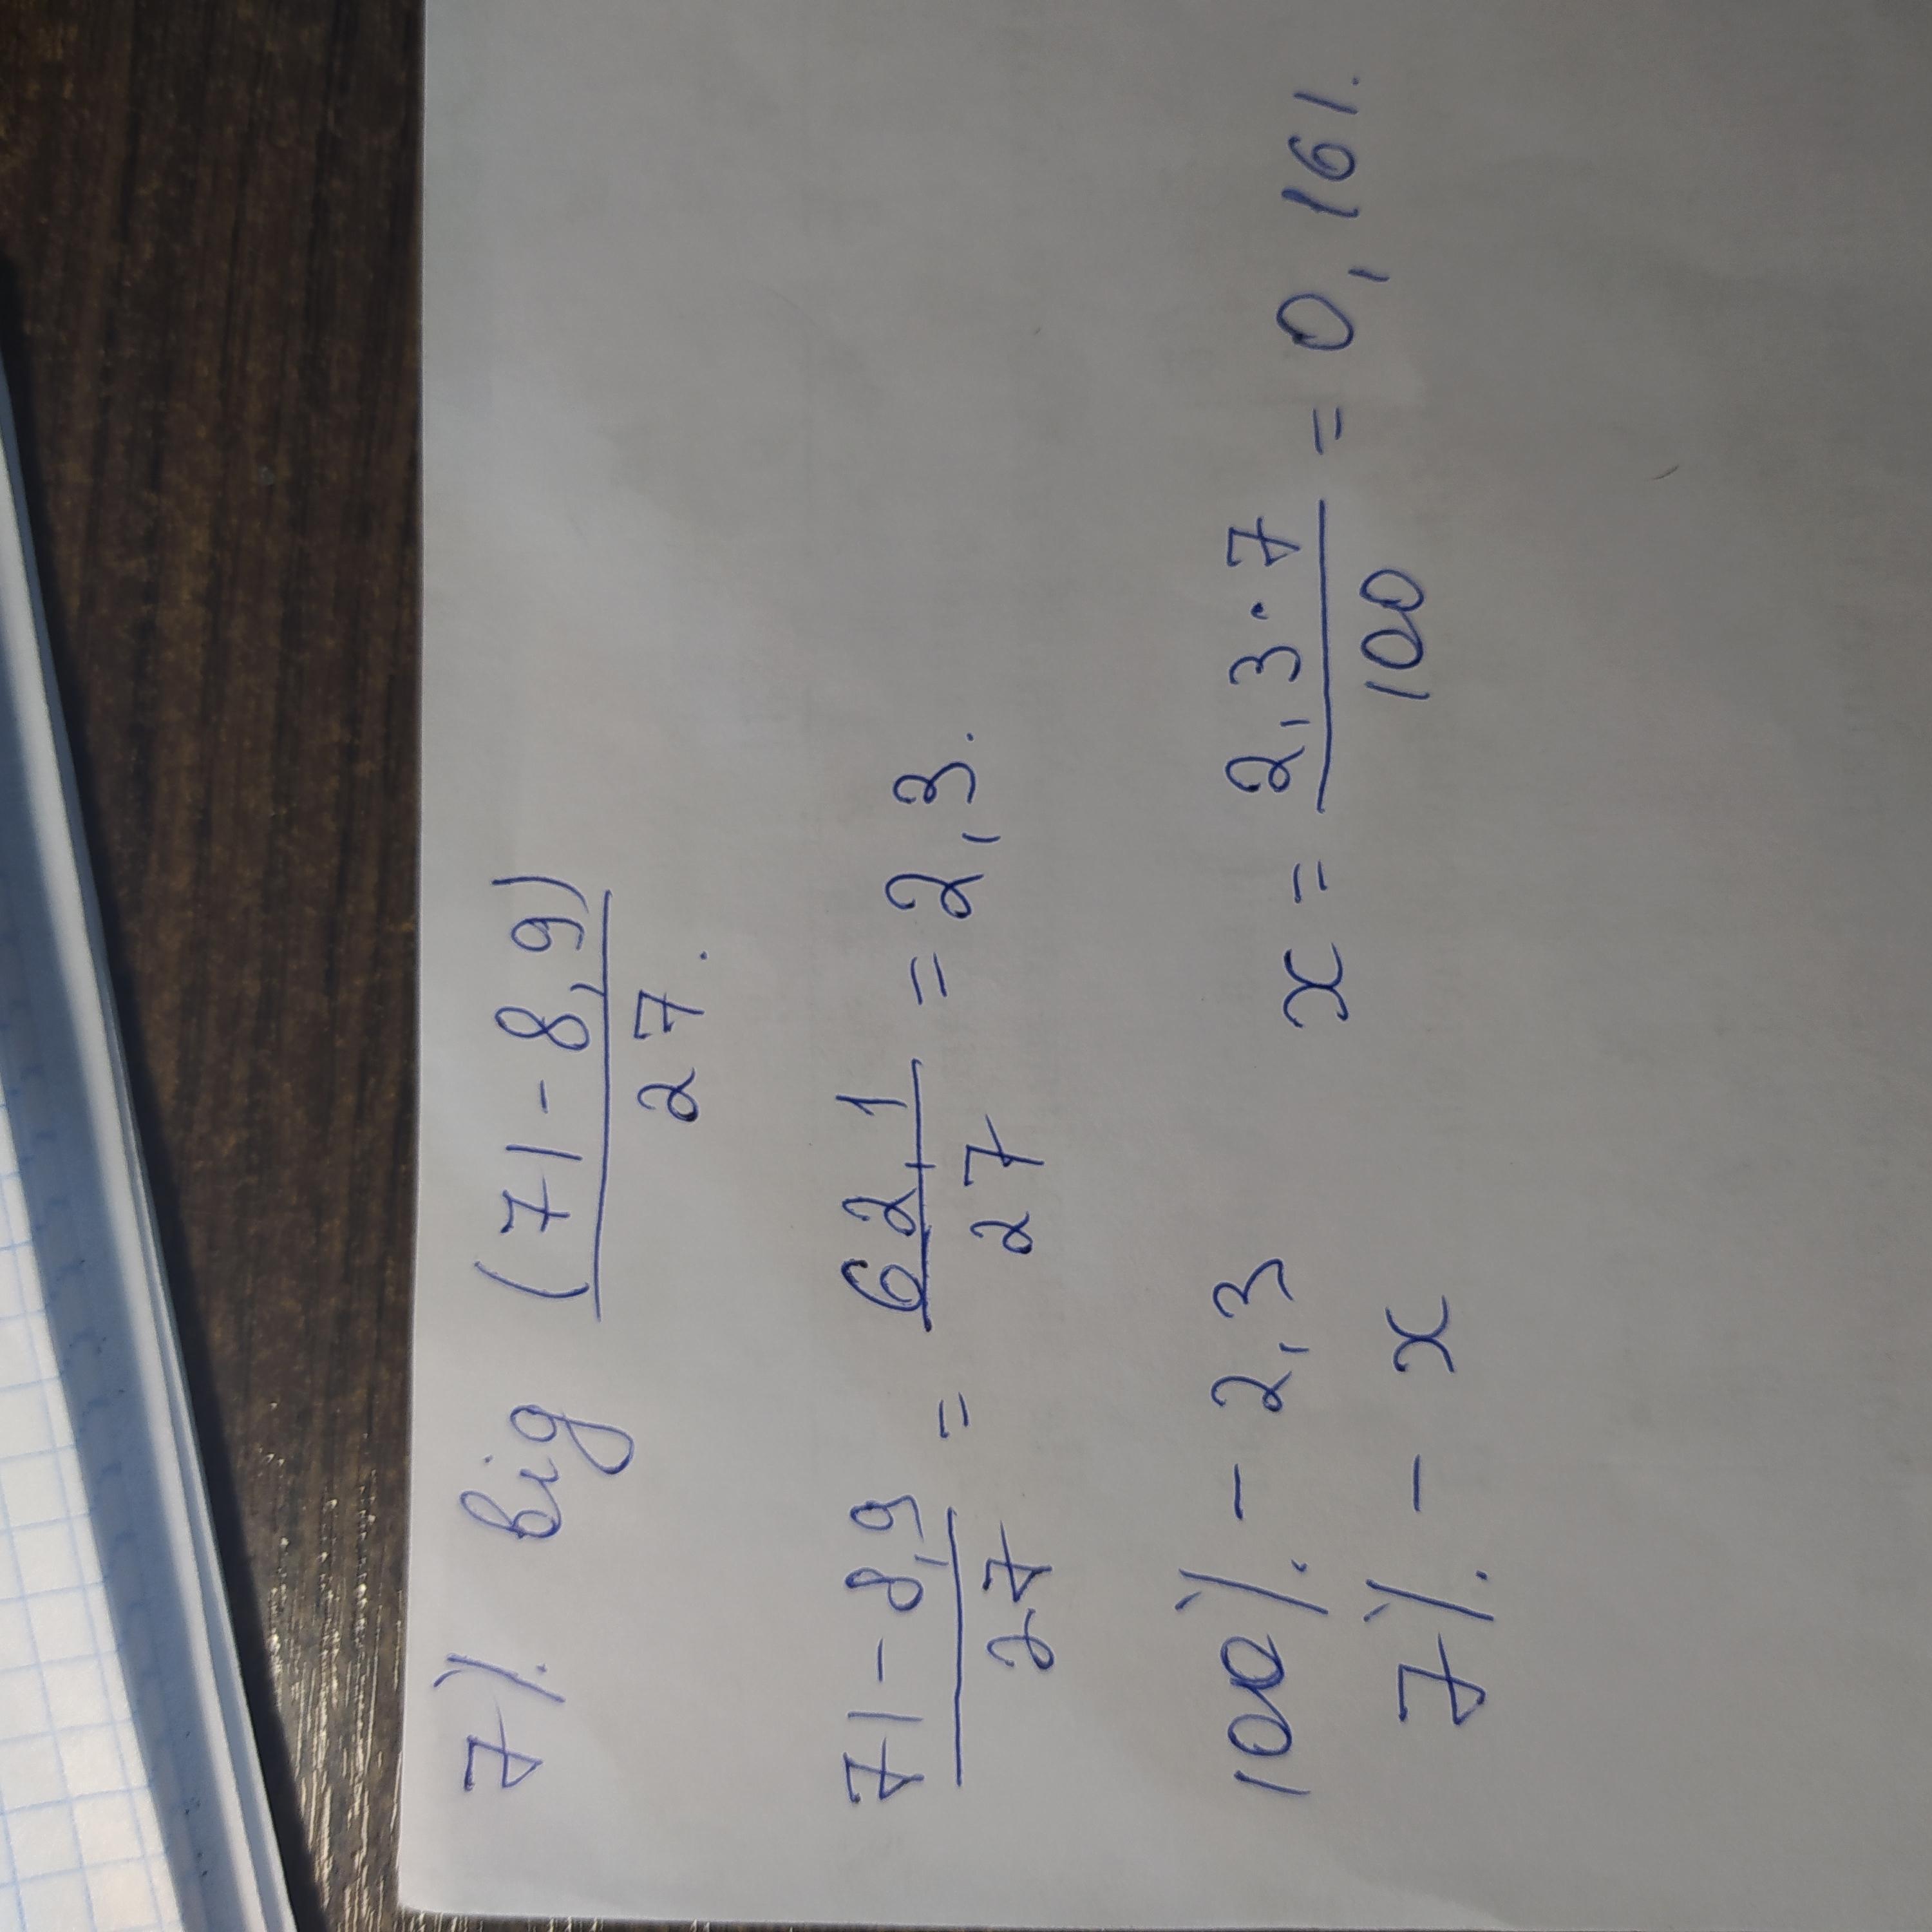 7% від (71-8,9)/27.
(71-8,9)/27 = 62,1/27 = 2,3.
100% - 2,3
7% - x
x = (2,3·7)/100 = 0,161.